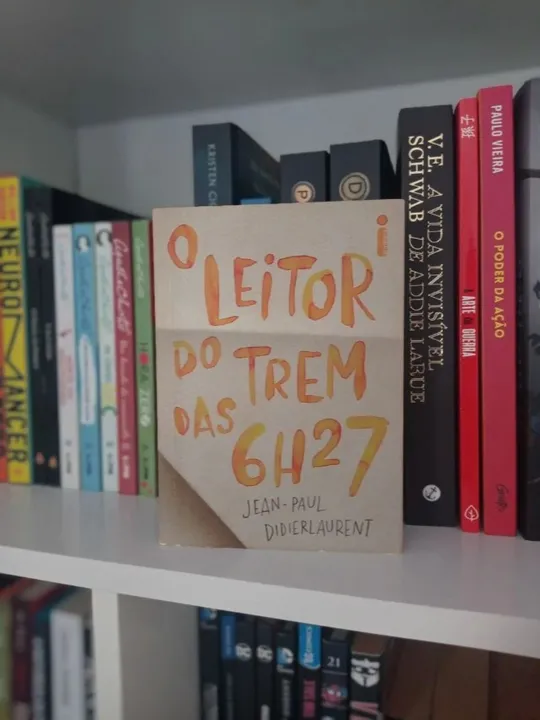 O LEITOR
DO TREM
DAS 6H27
JEAN-PAUL
DIDIERLAURENT
NEURO
MANCER
HORA ZERO
KRISTEN
P
D
V.E. SCHWAB
A VIDA INVISÍVEL
DE ADDIE LARUE
A ARTE DA GUERRA
PAULO VIEIRA
O PODER DA AÇÃO
21